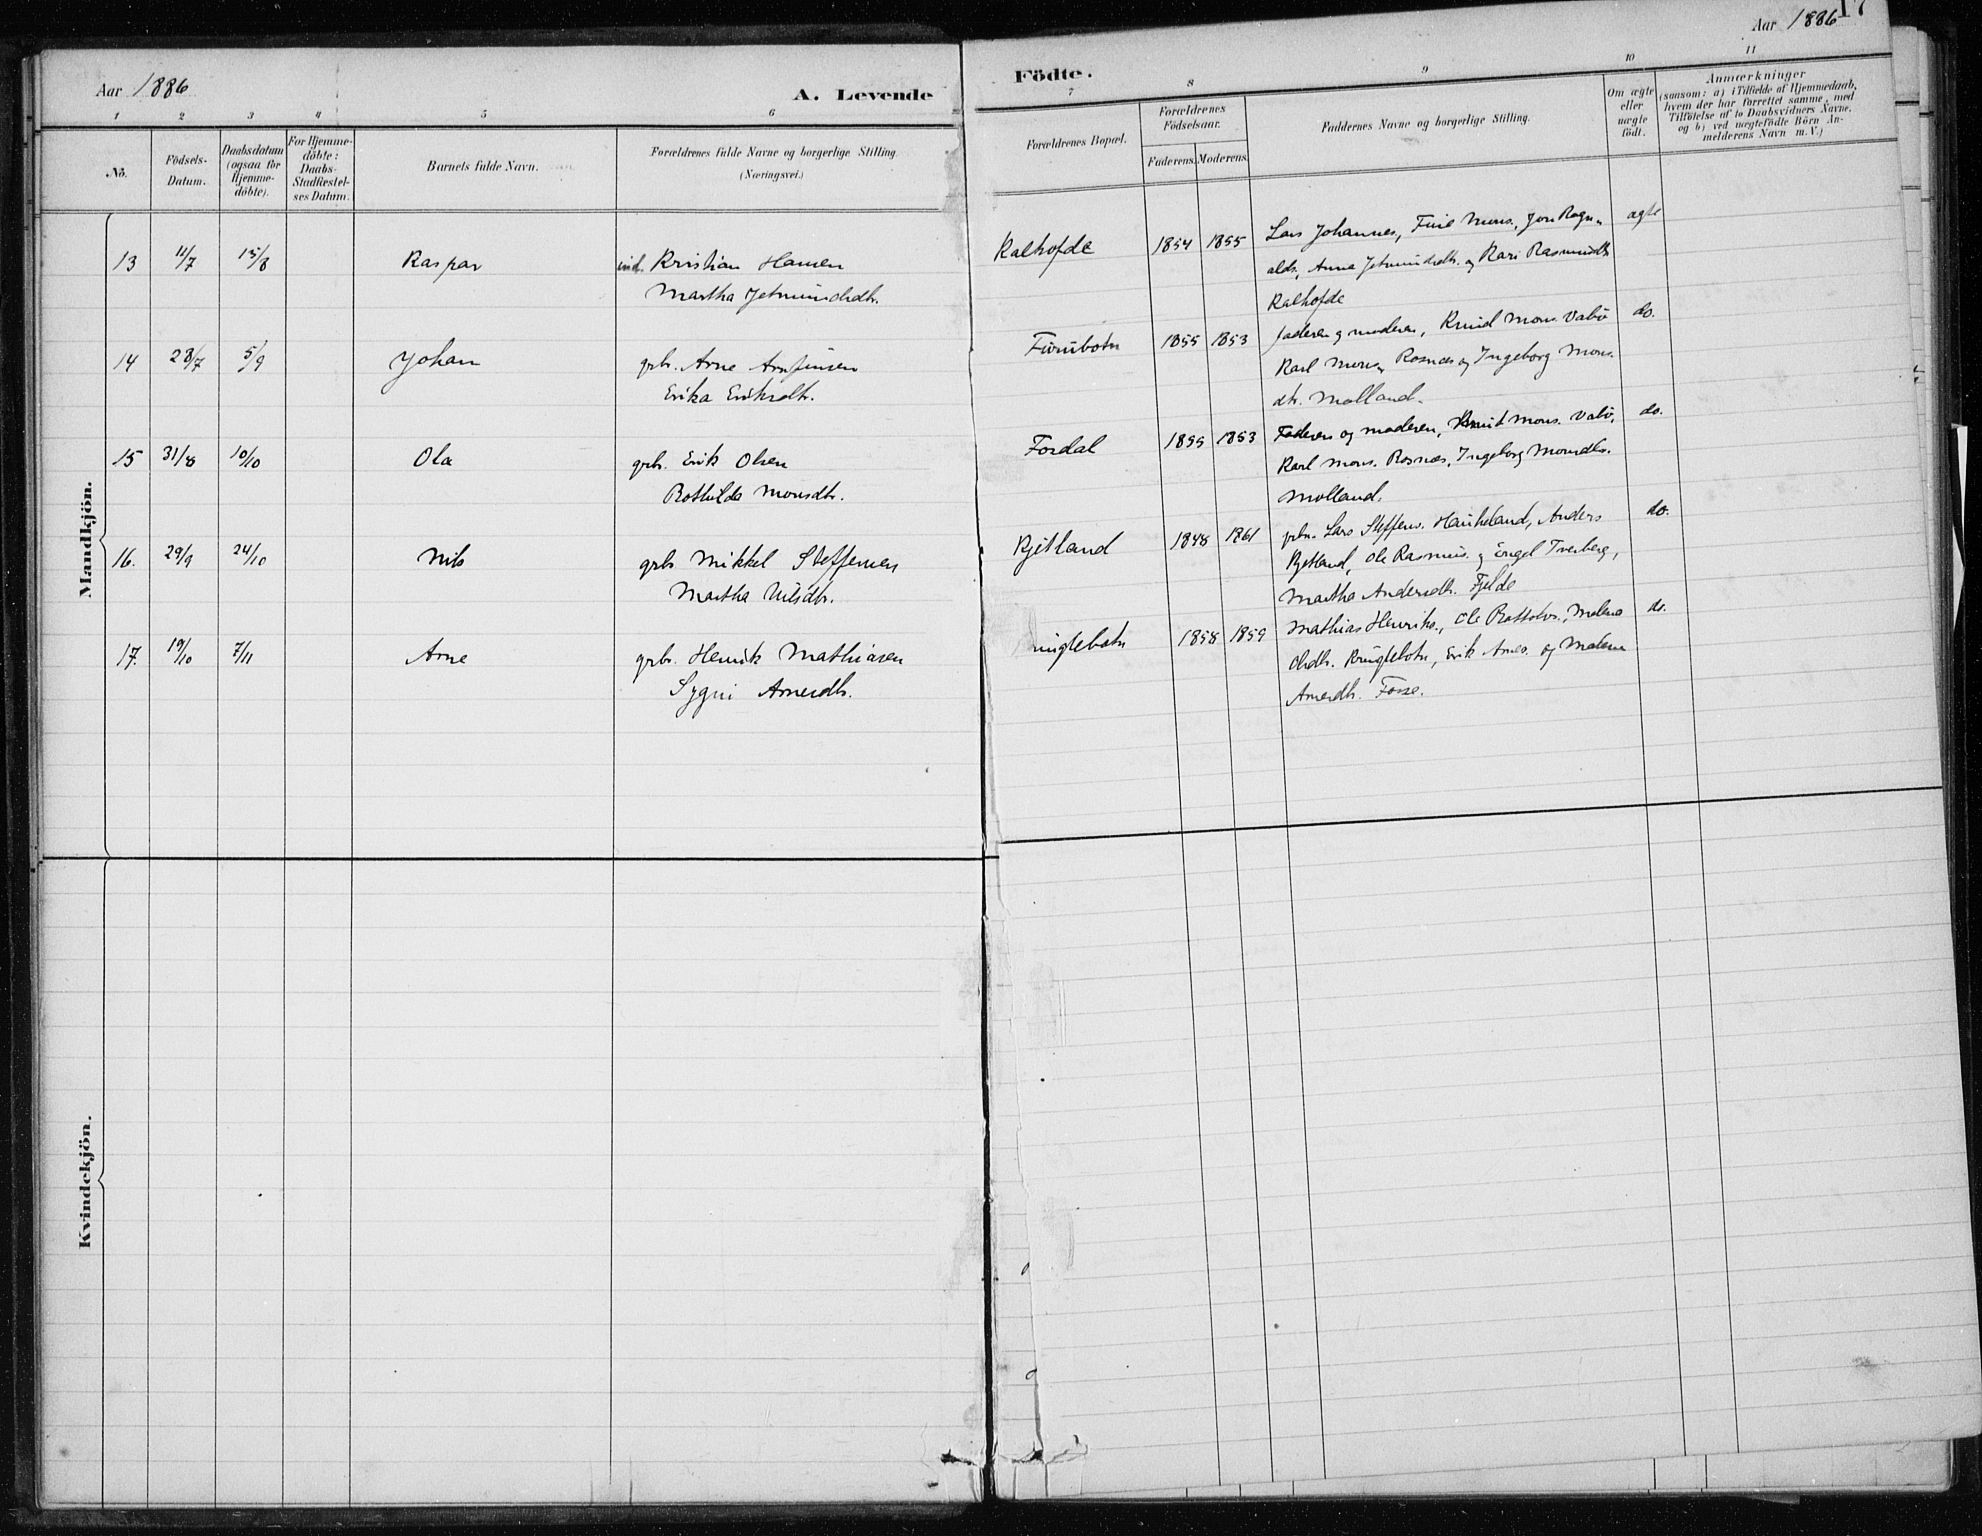 Aar 1886
A. Levende
1 2 3 4 5 6
No.
Födsels-
Datum.
Daabsdatum
(ogsaa for
Hjemme-
döbte).
For Hjemme-
döbte:
Daabs-
Stadfæstel-
ses Datum.
Barnets fulde Navn.
Forældrenes fulde Navne og borgerlige Stilling
(Næringsvei.)
Mandkjön.
13 11/7 15/8 Kaspar ind. Kristian Hansen
Martha Jetmundsdtr.
14 28/7 5/9 Johan grbr. Arne Arnfinsen
Erika Eriksdtr.
15 31/8 10/10 Ola grbr. Erik Olsen
Bothilda Monsdtr.
16. 29/9 24/10 Nils grbr. Mikkel Steffensen
Martha Nilsdtr.
17. 19/10 7/11 Arne grbr. Henrik Mathiasen
Sygni Arnesdtr.
Kvindekjön.
17
Aar 1886
Födte.
7 8 9 10 11
Forældrenes Bopæl.
Forældrenes
Födselsaar.
Faderens. Moderens.
Faddernes Navne og borgerlige Stilling.
Om ægte
eller
uægte
födt.
Anmærkninger
(saasom: a) i Tilfælde af Hjemmedaab,
hvem der har forrettet samme, med
Tilföielse af to Daabsvidners Navne,
og b) ved uægtefödte Börn An-
melderens Navn m. V.)
Kalhofde 1854 1855 Lars Johannes, Mons., Jon Ragn- ægte
alds., Anna Jetmundsdtr. og Kari Rasmusdtr
Kalhofde
Furubotn 1855 1853 faderen og moderen, Knud Mons. Vabö do.
Karl Mons. Rosnæs og Ingeborg Mons-
dtr. Molland.
Fosdal 1855 1853 Faderen og moderen, Knut Mons. Vabö, do.
Karl Mons. Rosnæs, Ingeborg Monsdtr.
Molland.
Kjetland 1848 1861 grbr. Lars Steffens. Haukeland, Anders do.
Kjetland, Ole Rasmus. og Engel Tverberg,
Martha Andersdtr. Fjelde
ringlebotn 1858 1859 Mathias Henriks., Ole Bottolvs., Malena do.
Olsdtr. Kringlebotn, Erik Arnes. og Malene
Arnesdtr. Fosse.